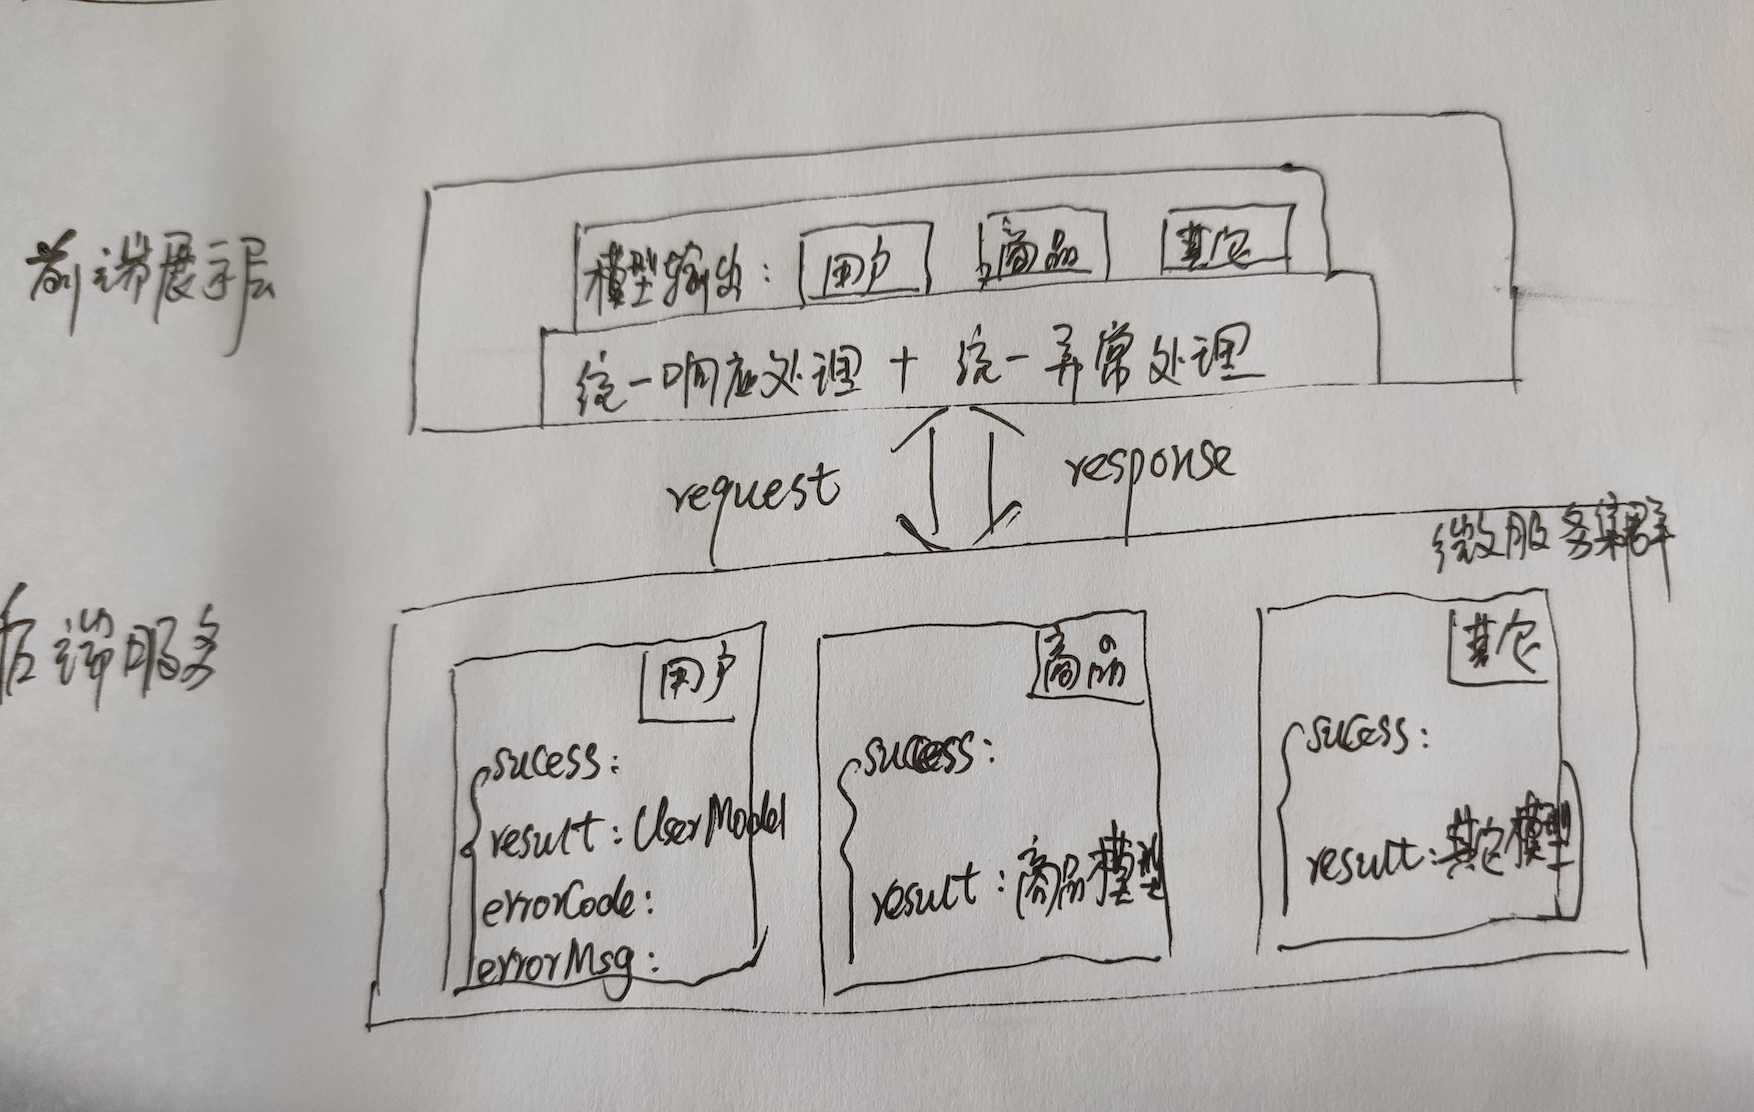 前端展示层
模型输出： 用户 商品 其它
统一响应处理 + 统一异常处理
request
response
微服务集群
后端服务
用户
sucess：
result：UserModel
errorCode：
errorMsg：
商品
success：
result：商品模型
其它
sucess：
result：其它模型